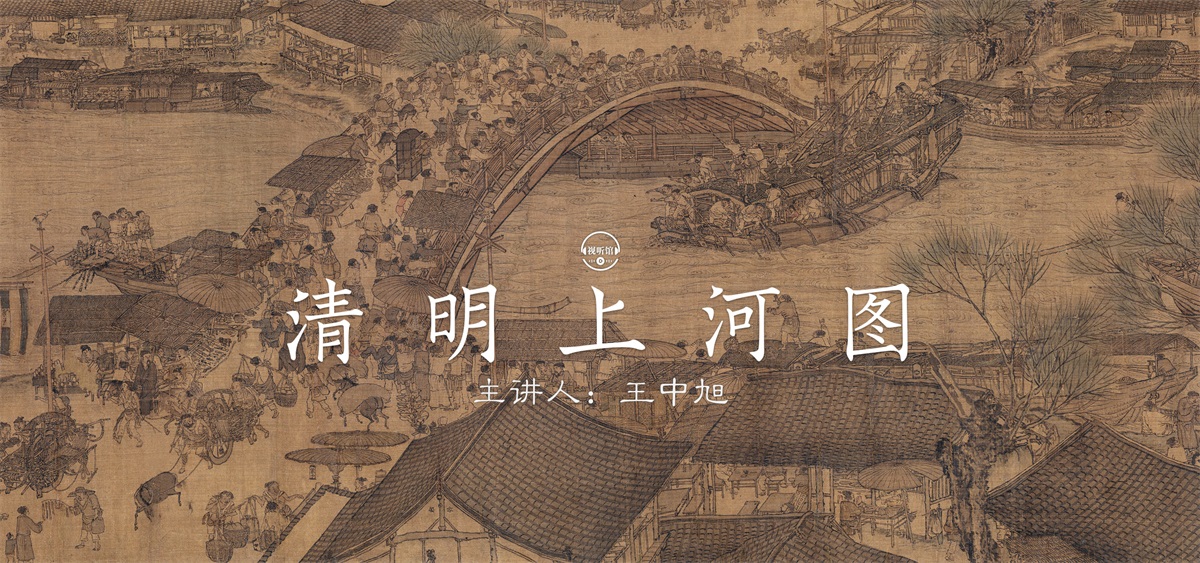 视听馆
清明上河图
主讲人：王中旭